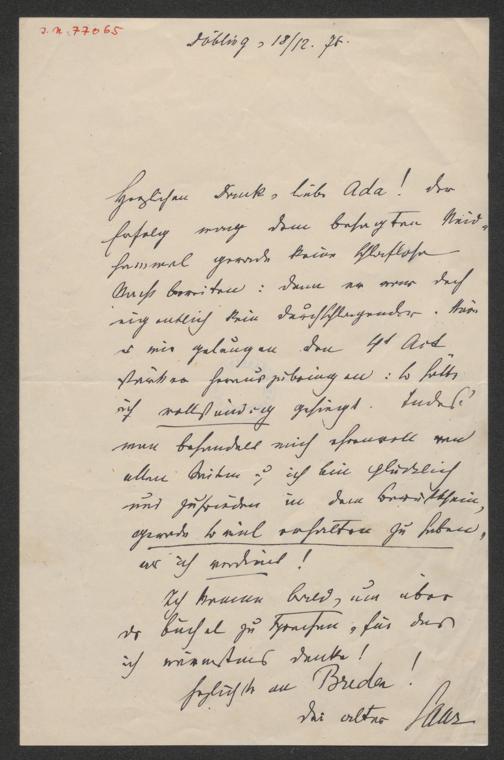 J.N. 77065
Döbling, 18/12. 78.
Herzlichen Dank, liebe Ada! Der
Erfolg mag dem besagten Neid-
hammel gerade keine schlaflose
Nacht bereiten: denn er war doch
eigentlich kein durchschlagender. Wäre
es mir gelungen den 4t Act
stärker herauszubringen: so hätte
ich vollständig gesiegt. Indes:
man behandelt mich ehrenvoll von
allen Seiten u. ich bin glücklich
und zufrieden in dem Bewußtsein,
gerade so viel erhalten zu haben,
als ich verdient!
Ich komme bald, um über
das Büchel zu sprechen, für das
ich wärmstens danke!
Herzlichste an Breden!
Dein alter Saar